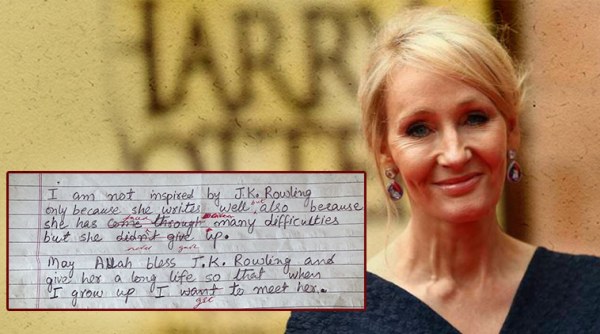 HARRY
I am not inspired by J.K. Rowling
only because she writes well but also because
she has come through many difficulties
but she didn't give up.
never gave
May Allah bless J.K. Rowling and
give her a long life so that when
I grow up I want to meet her.
get